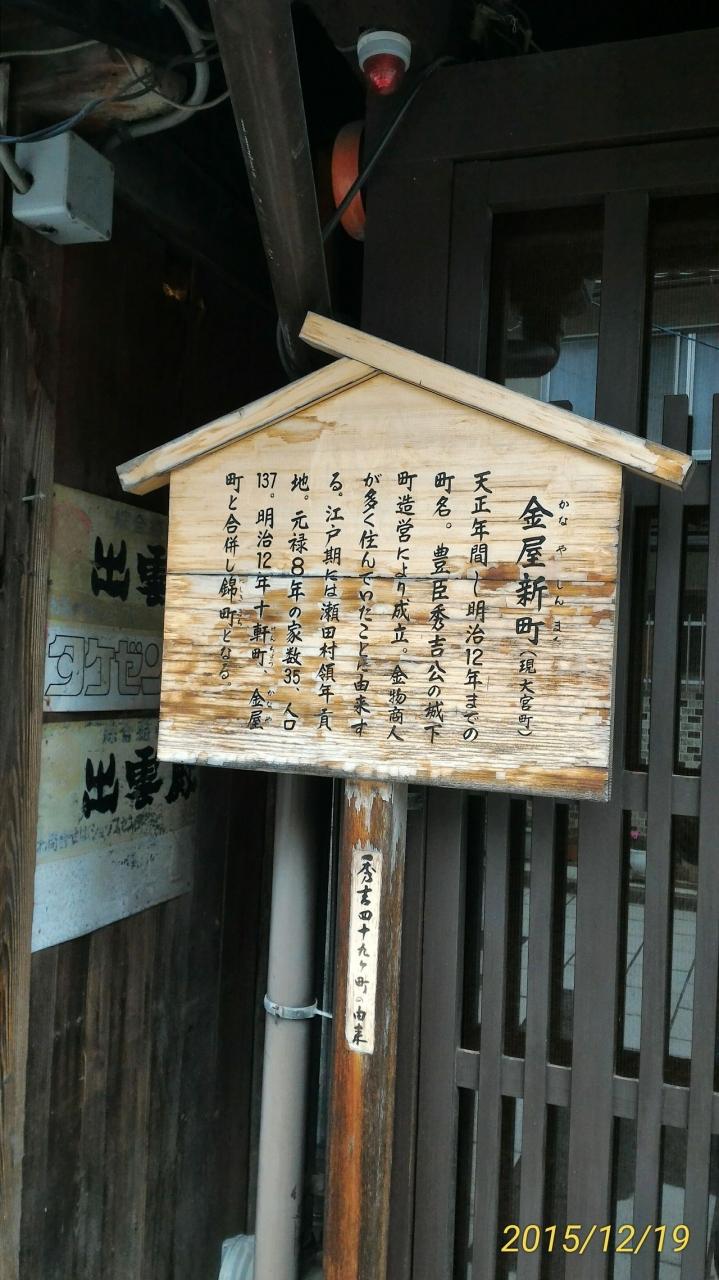 金屋新町(現大宮町)
かなやしんま
天正年間〜明治12年までの
町名。豊臣秀吉公の城下
町造営により、成立。金物商人
が多く住んでいたことに由来す
る。江戸期には瀬田村領年貢
地。元禄8年の家数35、人口
137。明治12年十軒町、金屋
町と合併し錦町となる。
秀吉四十九ヶ町の由来
出雲
タケゼン
出雲
2015/12/19